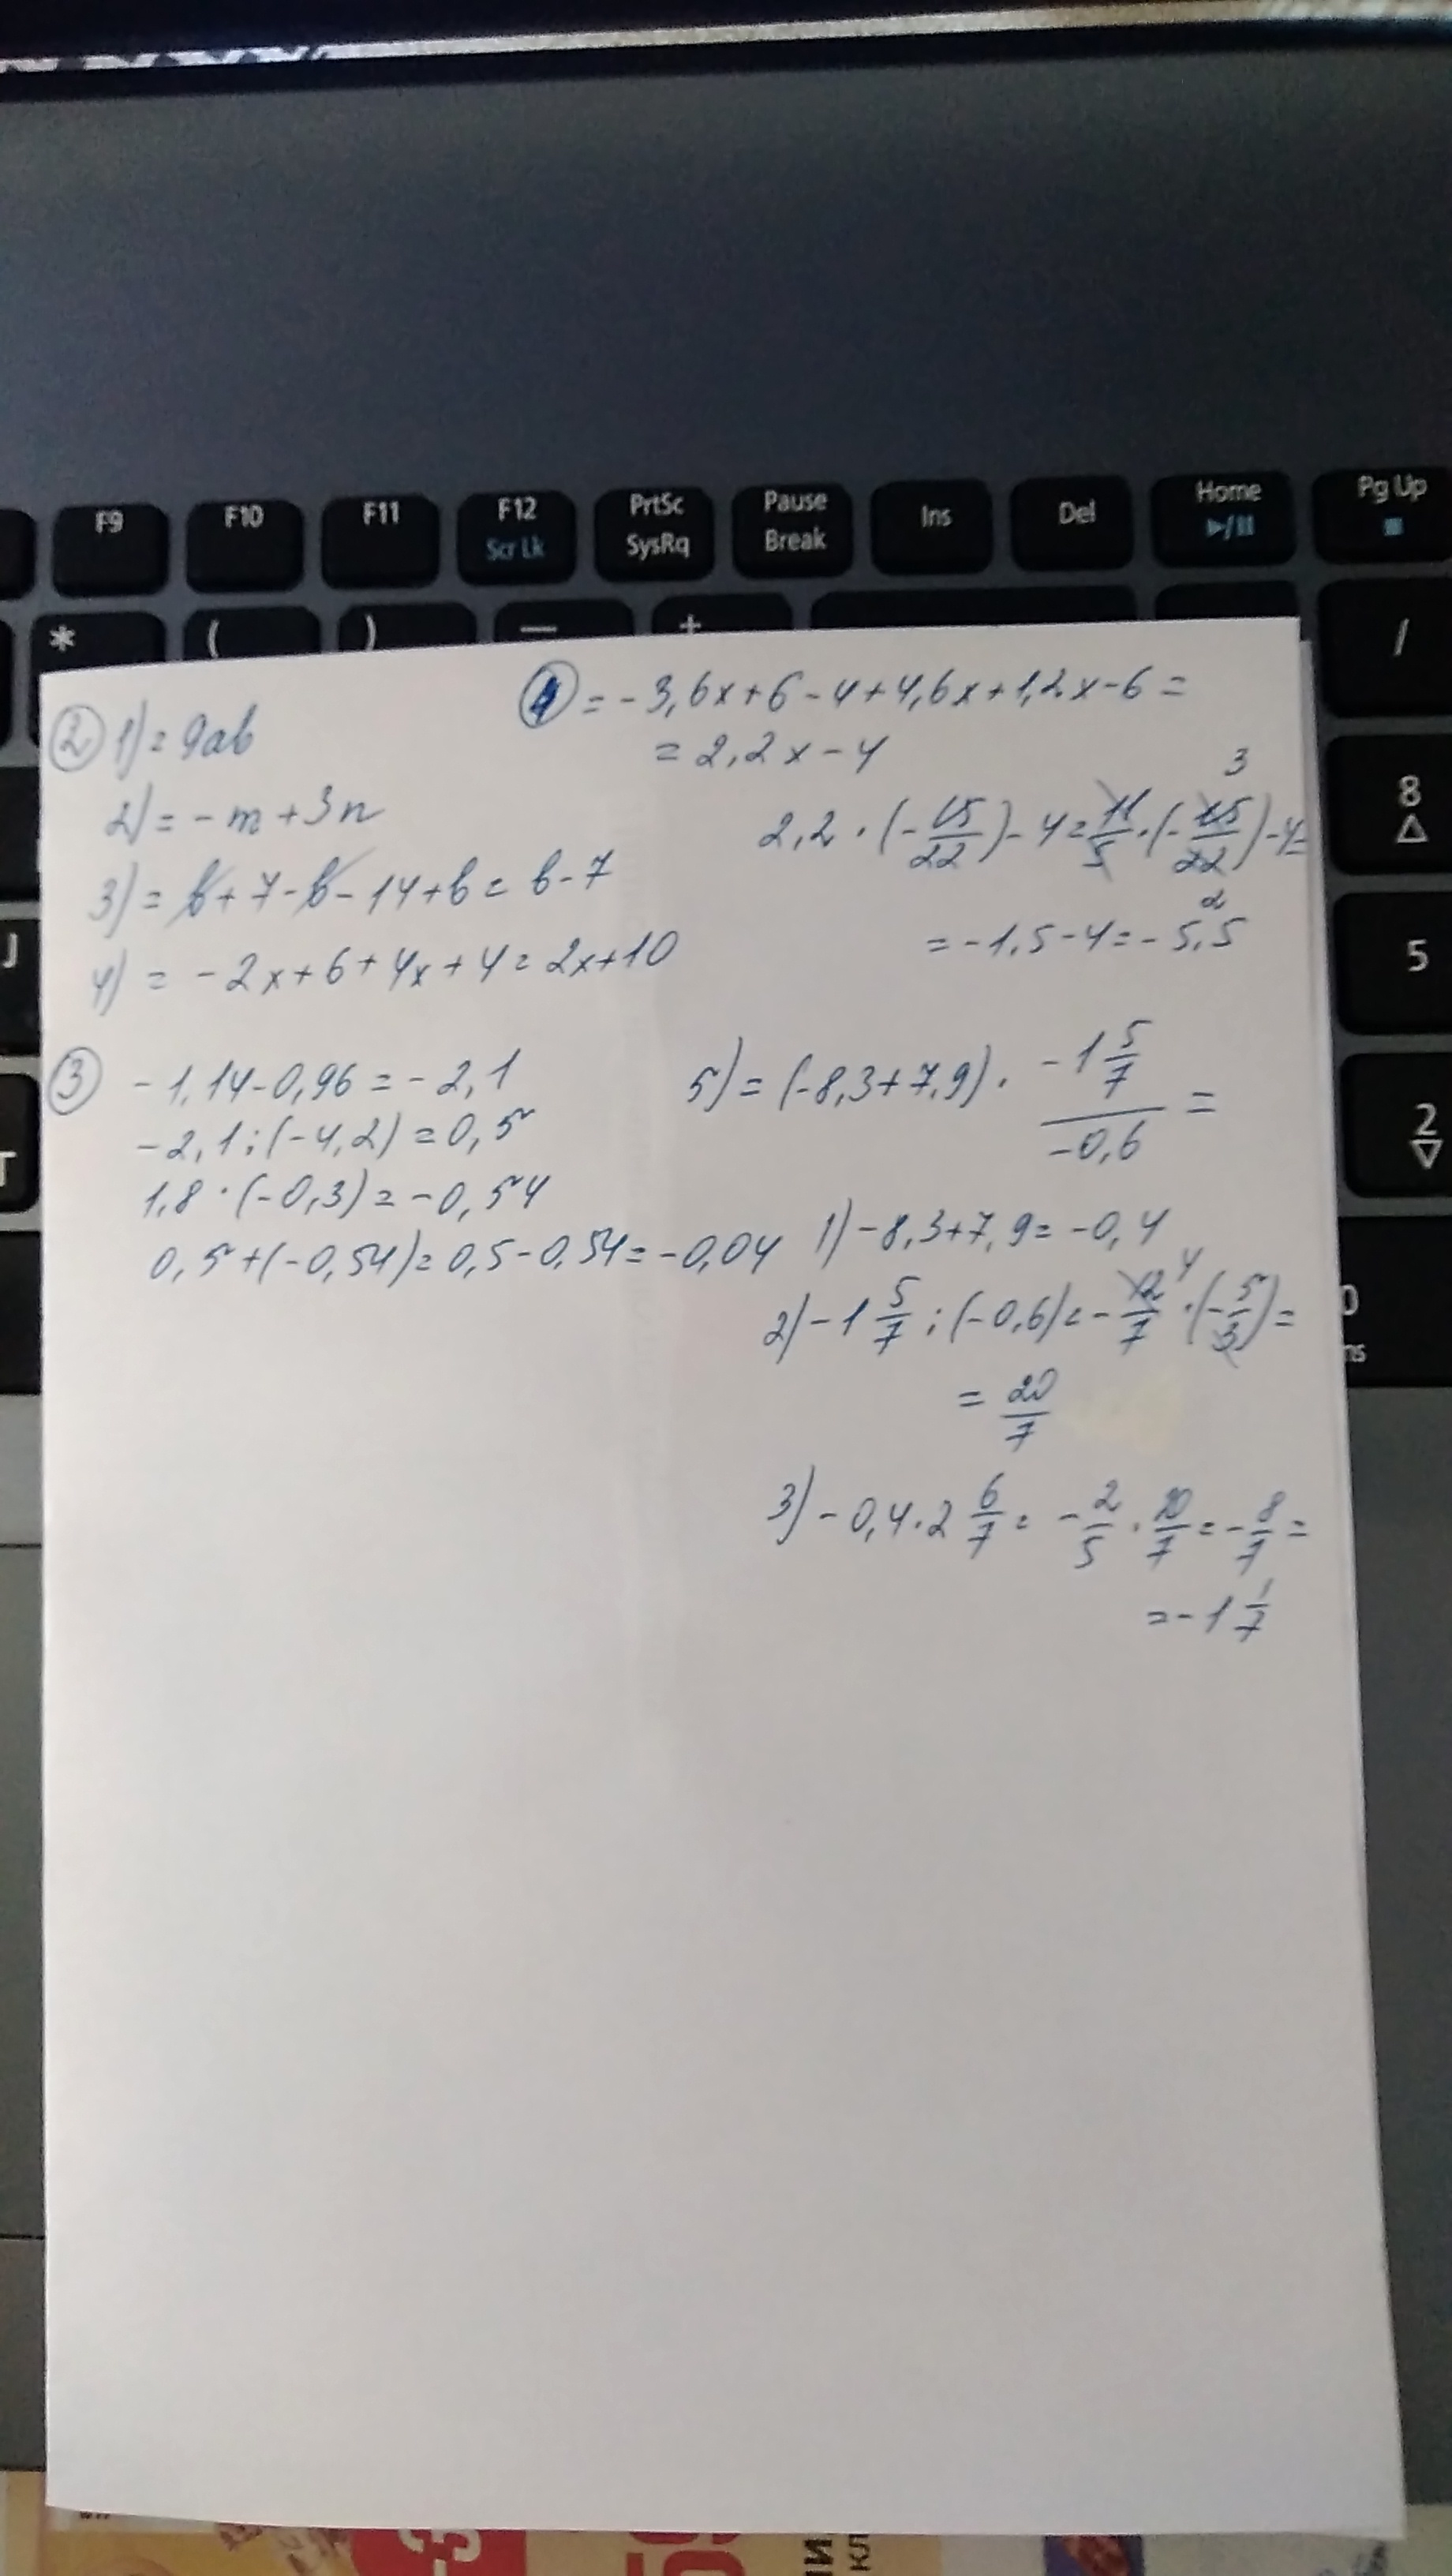 F9 F10 F11 F12 PrtSc Pause Ins Del Home Pg Up
Scr Lk SysRq Break
* ( ) — + /
8
J 5
2
② 1) = 9ab
2) = - m + 3n
3) = b + 7 - b - 14 + b = b - 7
4) = - 2x + 6 + 4x + 4 = 2x + 10
③ - 1,14 - 0,96 = - 2,1
- 2,1 : (- 4,2) = 0,5
1,8 · (- 0,3) = - 0,54
0,5 + (- 0,54) = 0,5 - 0,54 = - 0,04
④ = - 3,6x + 6 - 4 + 4,6x + 1,2x - 6 =
= 2,2x - 4
2,2 · (- 15/22) - 4 = 11/5 · (- 15/22) - 4 =
3
2
= - 1,5 - 4 = - 5,5
5) = (- 8,3 + 7,9) · - 1 5/7 / - 0,6 =
1) - 8,3 + 7,9 = - 0,4
2) - 1 5/7 : (- 0,6) = - 12/7 · (- 5/3) =
4
= 20/7
3) - 0,4 · 2 6/7 = - 2/5 · 20/7 = - 8/7 =
= - 1 1/7